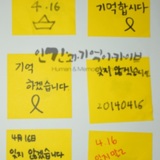 4.16
기억합시다
인간과기억아카이브
Human & Memory
기억
하겠습니다
잊지 않겠습니다
20140416
4月 16日
잊지 않겠습니다
4.16